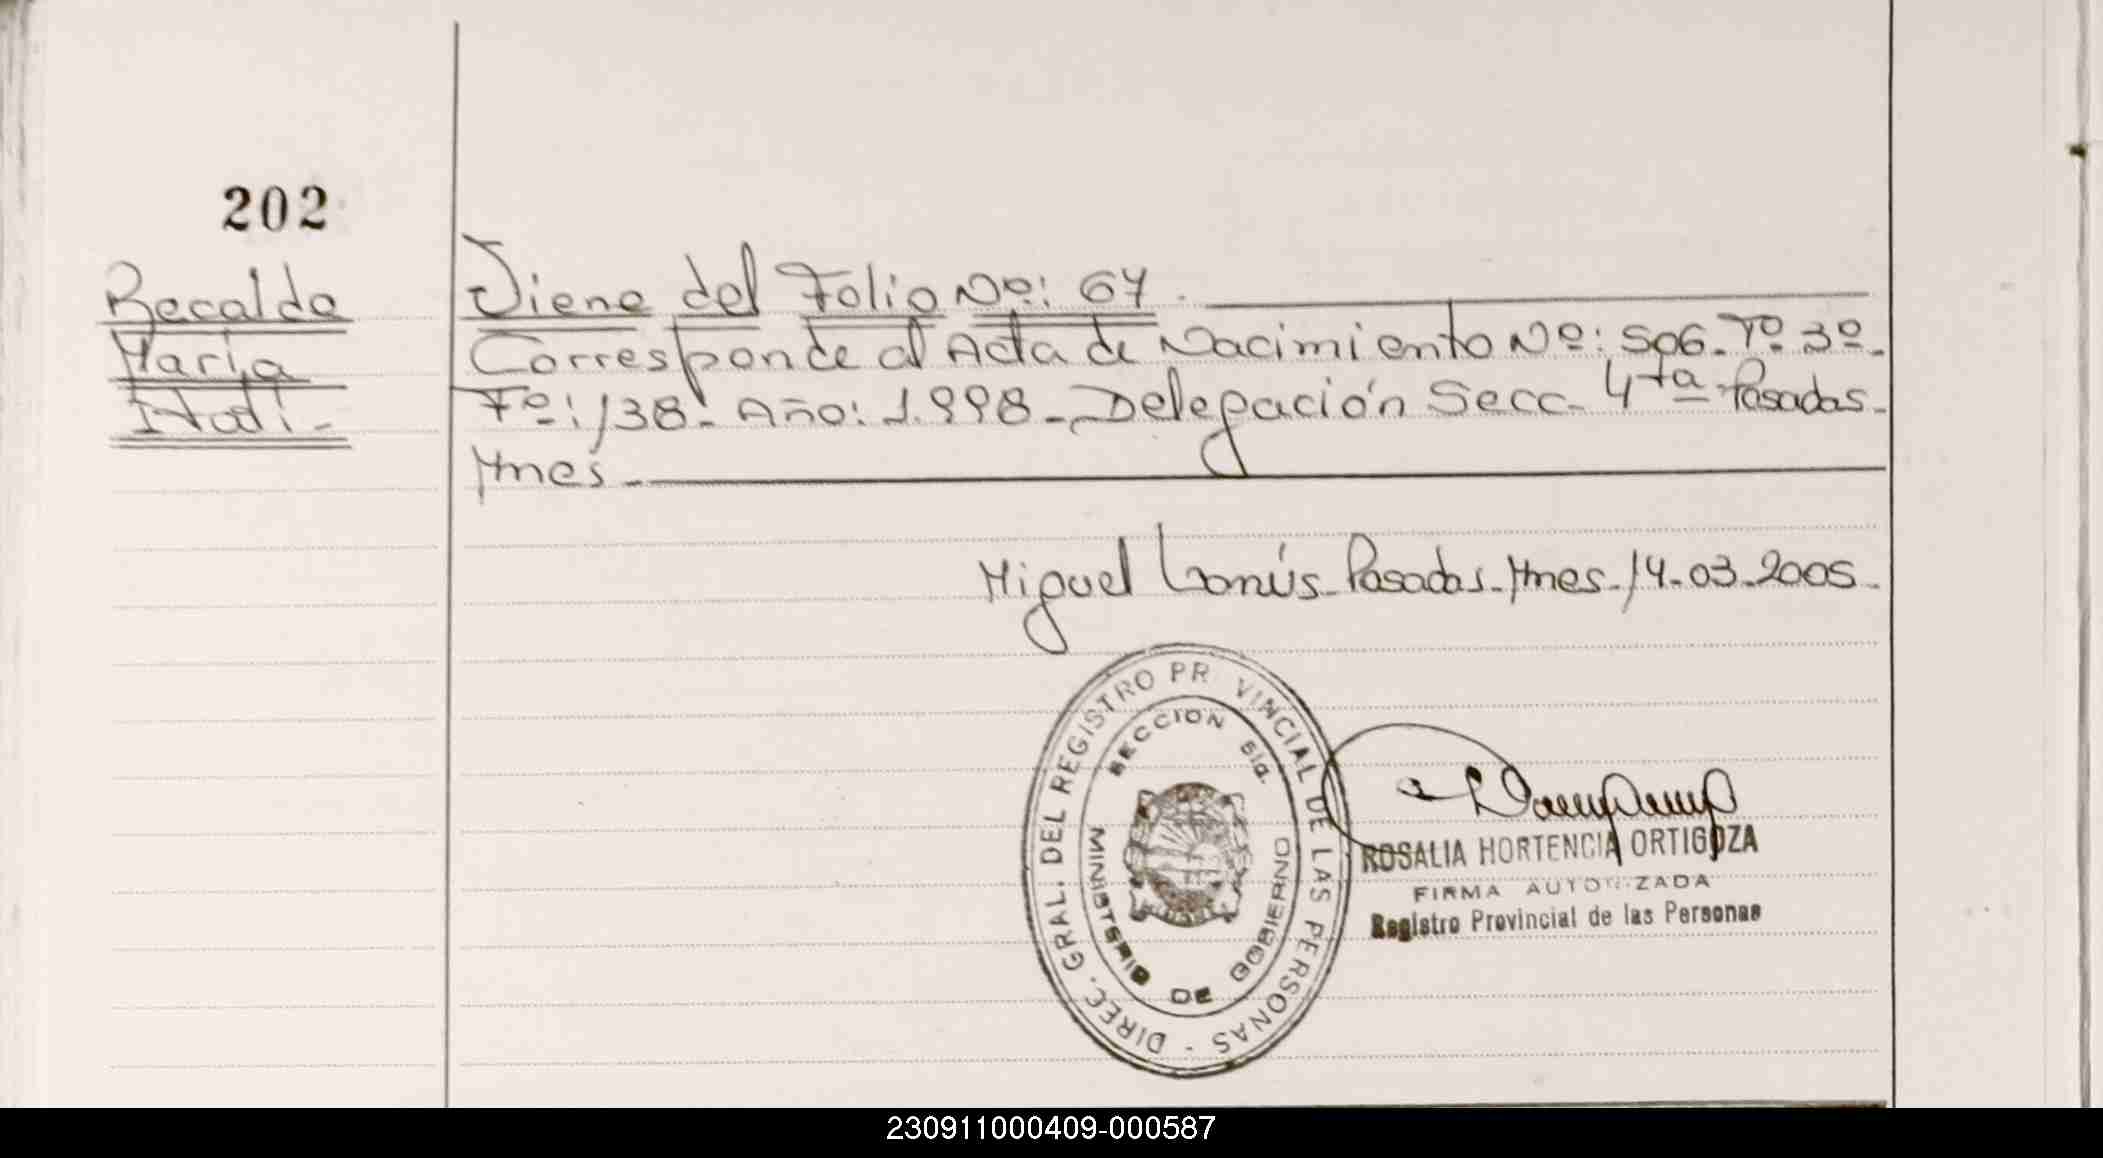 202
Recalde
Maria
Itati-
Viene del Folio Nº: 64.
Corresponde al Acta de Nacimiento Nº: 506. Tº 3º-
Fº: 138- Año: 1.998- Delegación Secc- 4ta Posadas-
Mnes-
Miguel Lanús- Posadas- Mnes- 14-03-2005-
DIREC. GRAL. DEL REGISTRO PR VINCIAL DE LAS PERSONAS -
SECCION
MINISTERIO DE GOBIERNO
ROSALIA HORTENCIA ORTIGOZA
FIRMA AUTORIZADA
Registro Provincial de las Personas
230911000409-000587